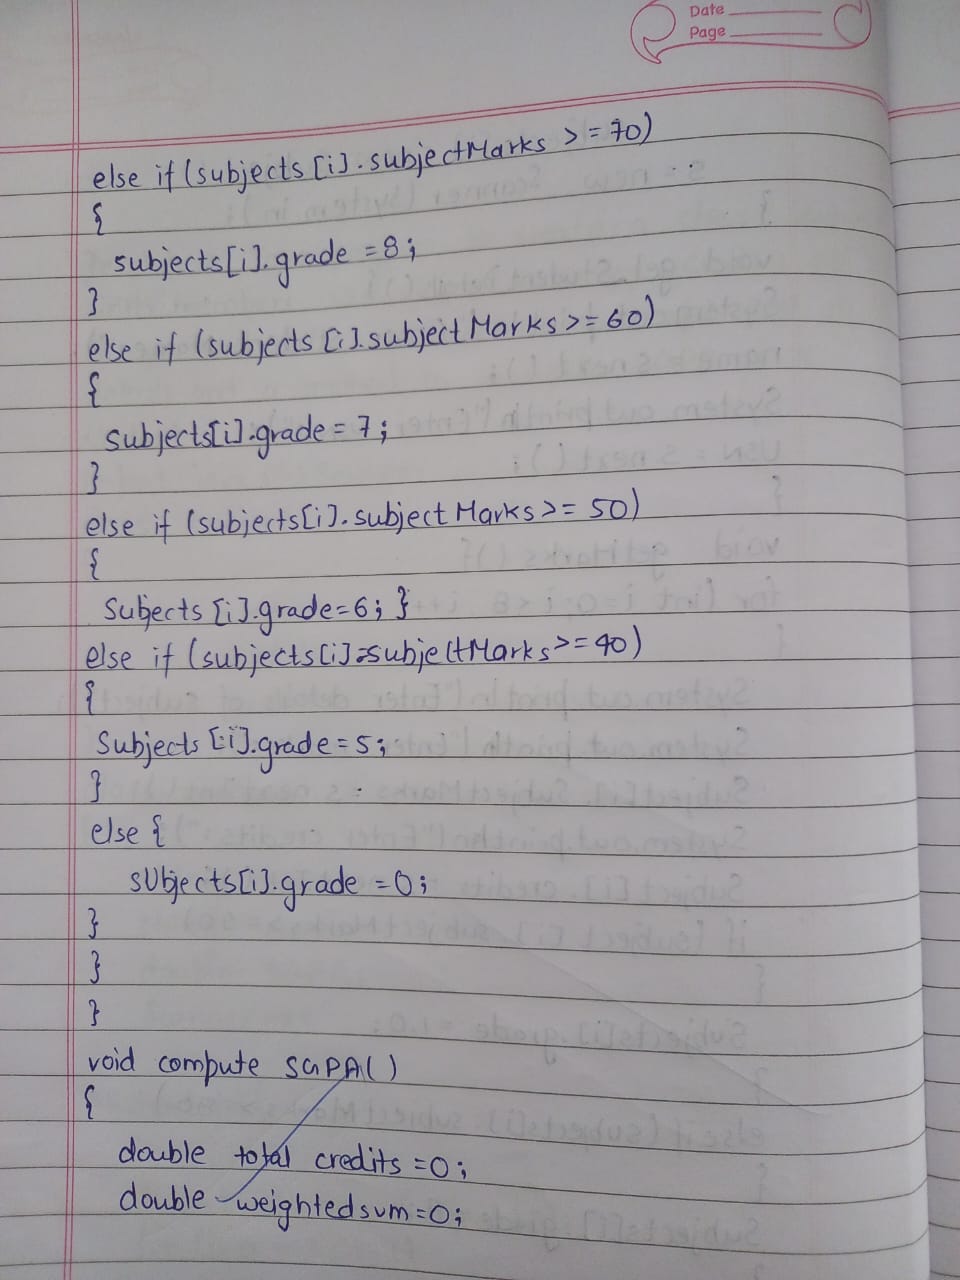 Date
Page
else if (subjects [i]. subjectMarks >= 70)
{
subjects[i]. grade = 8;
}
else if (subjects [i].subject Marks >= 60)
{
subjects[i].grade = 7;
}
else if (subjects[i]. subject Marks >= 50)
{
Subjects [i].grade=6; }
else if (subjects[i].subjectMarks >= 40)
{
Subjects [i].grade = 5;
}
else {
sUbjects[i].grade = 0;
}
}
}
void compute SGPA()
{
double total credits = 0;
double weightedsum = 0;